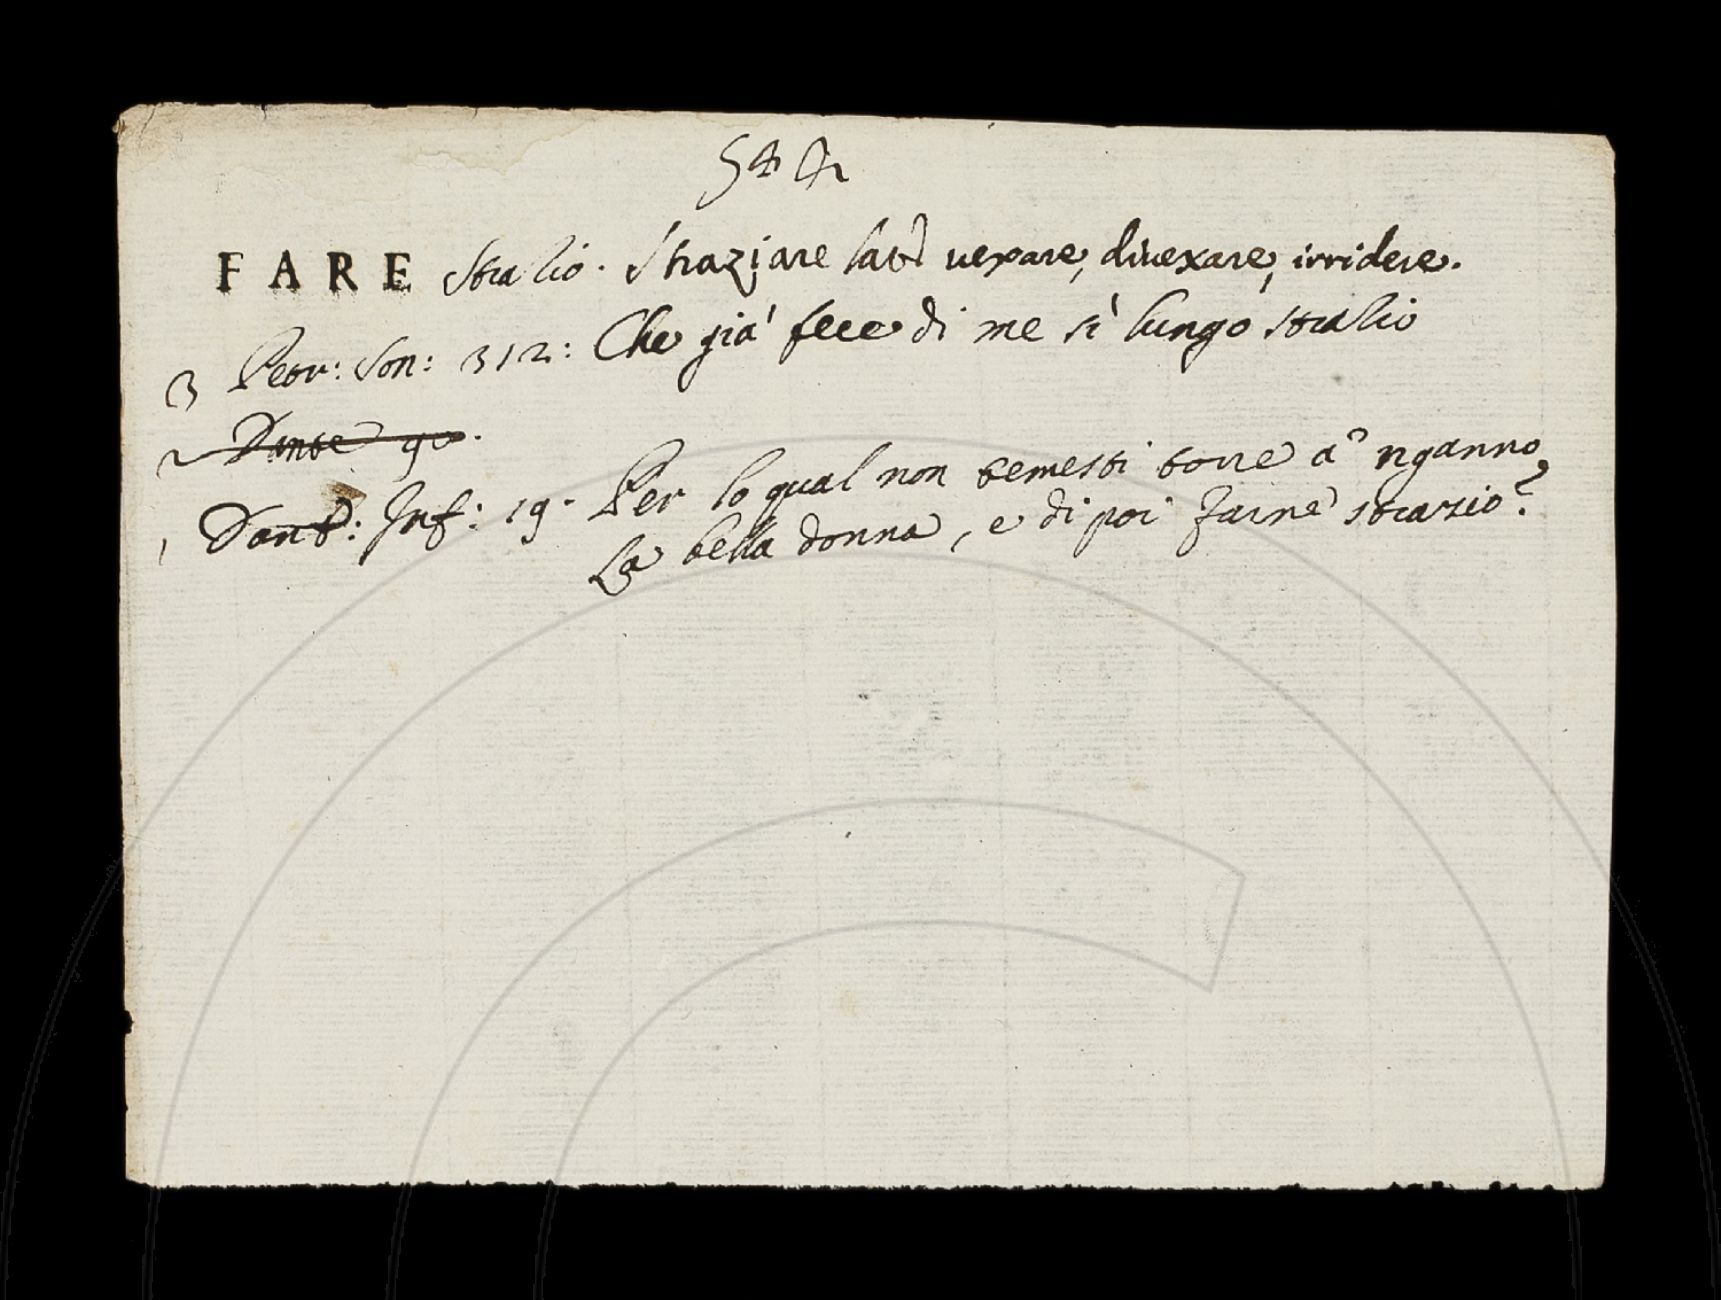 FARE strazio. Straziare lat. vexare, divexare, irridere.
3 Petr: Son: 312: Che già fece di me sì lungo strazio
2 Dante
1 Dant: Inf: 19. Per lo qual non temesti torre a 'nganno
La bella donna, e di poi farne strazio?